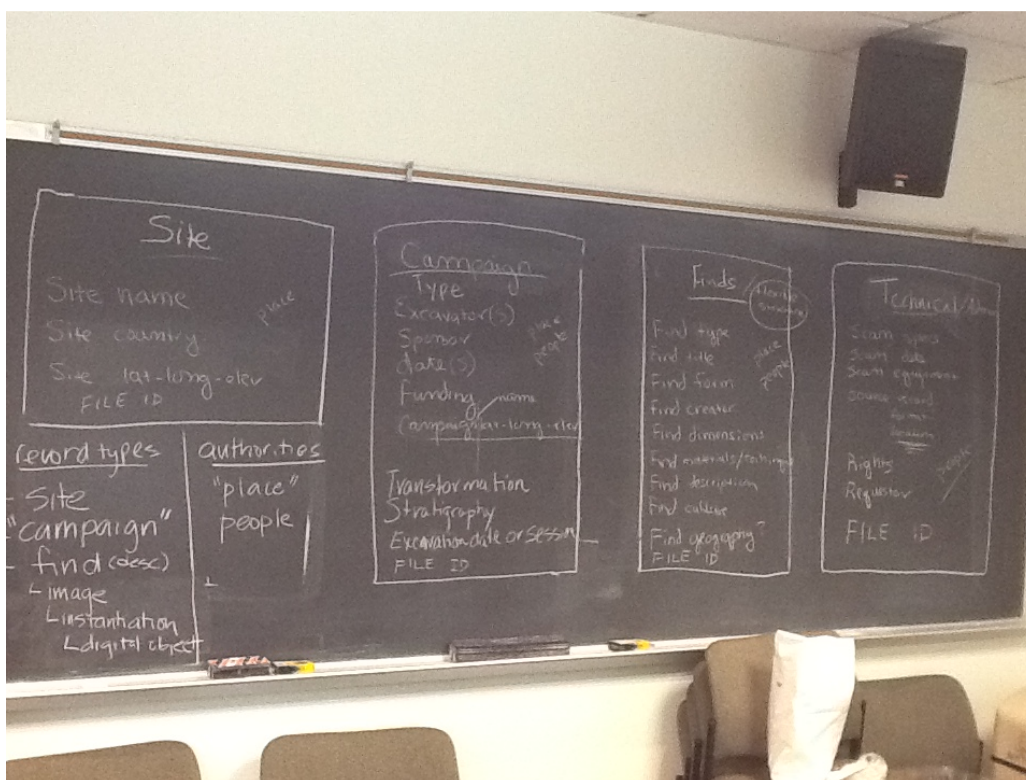 Site
Site name
Site country
Site lat-long-elev
FILE ID
place
record types
- Site
- "campaign"
- find (desc)
image
instantiation
digital object
authorities
"place"
people
Campaign
Type
Excavator(s)
Sponsor
date(s)
Funding
name
Campaign lat-long-elev
place
people
Transformation
Stratigraphy
Excavation date or session
FILE ID
Finds /
Find type
Find title
Find form
Find creator
Find dimensions
Find materials/
Find description
Find culture
Find geography?
FILE ID
place
people
Technical/
Scan types
Scan date
Scan equipment
source record
format
location
Rights
Requestor
people
FILE ID